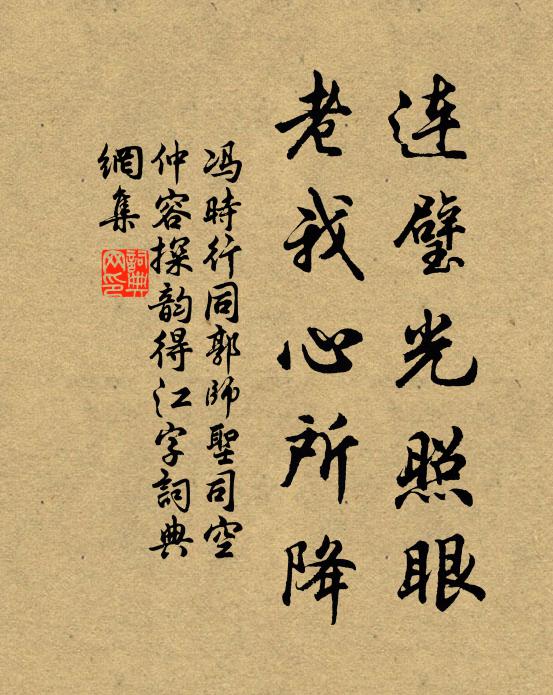 连璧光照眼
老我心所降
冯時行同郭師聖司空
仲容探韵得江字詞典
網集
詞典网印